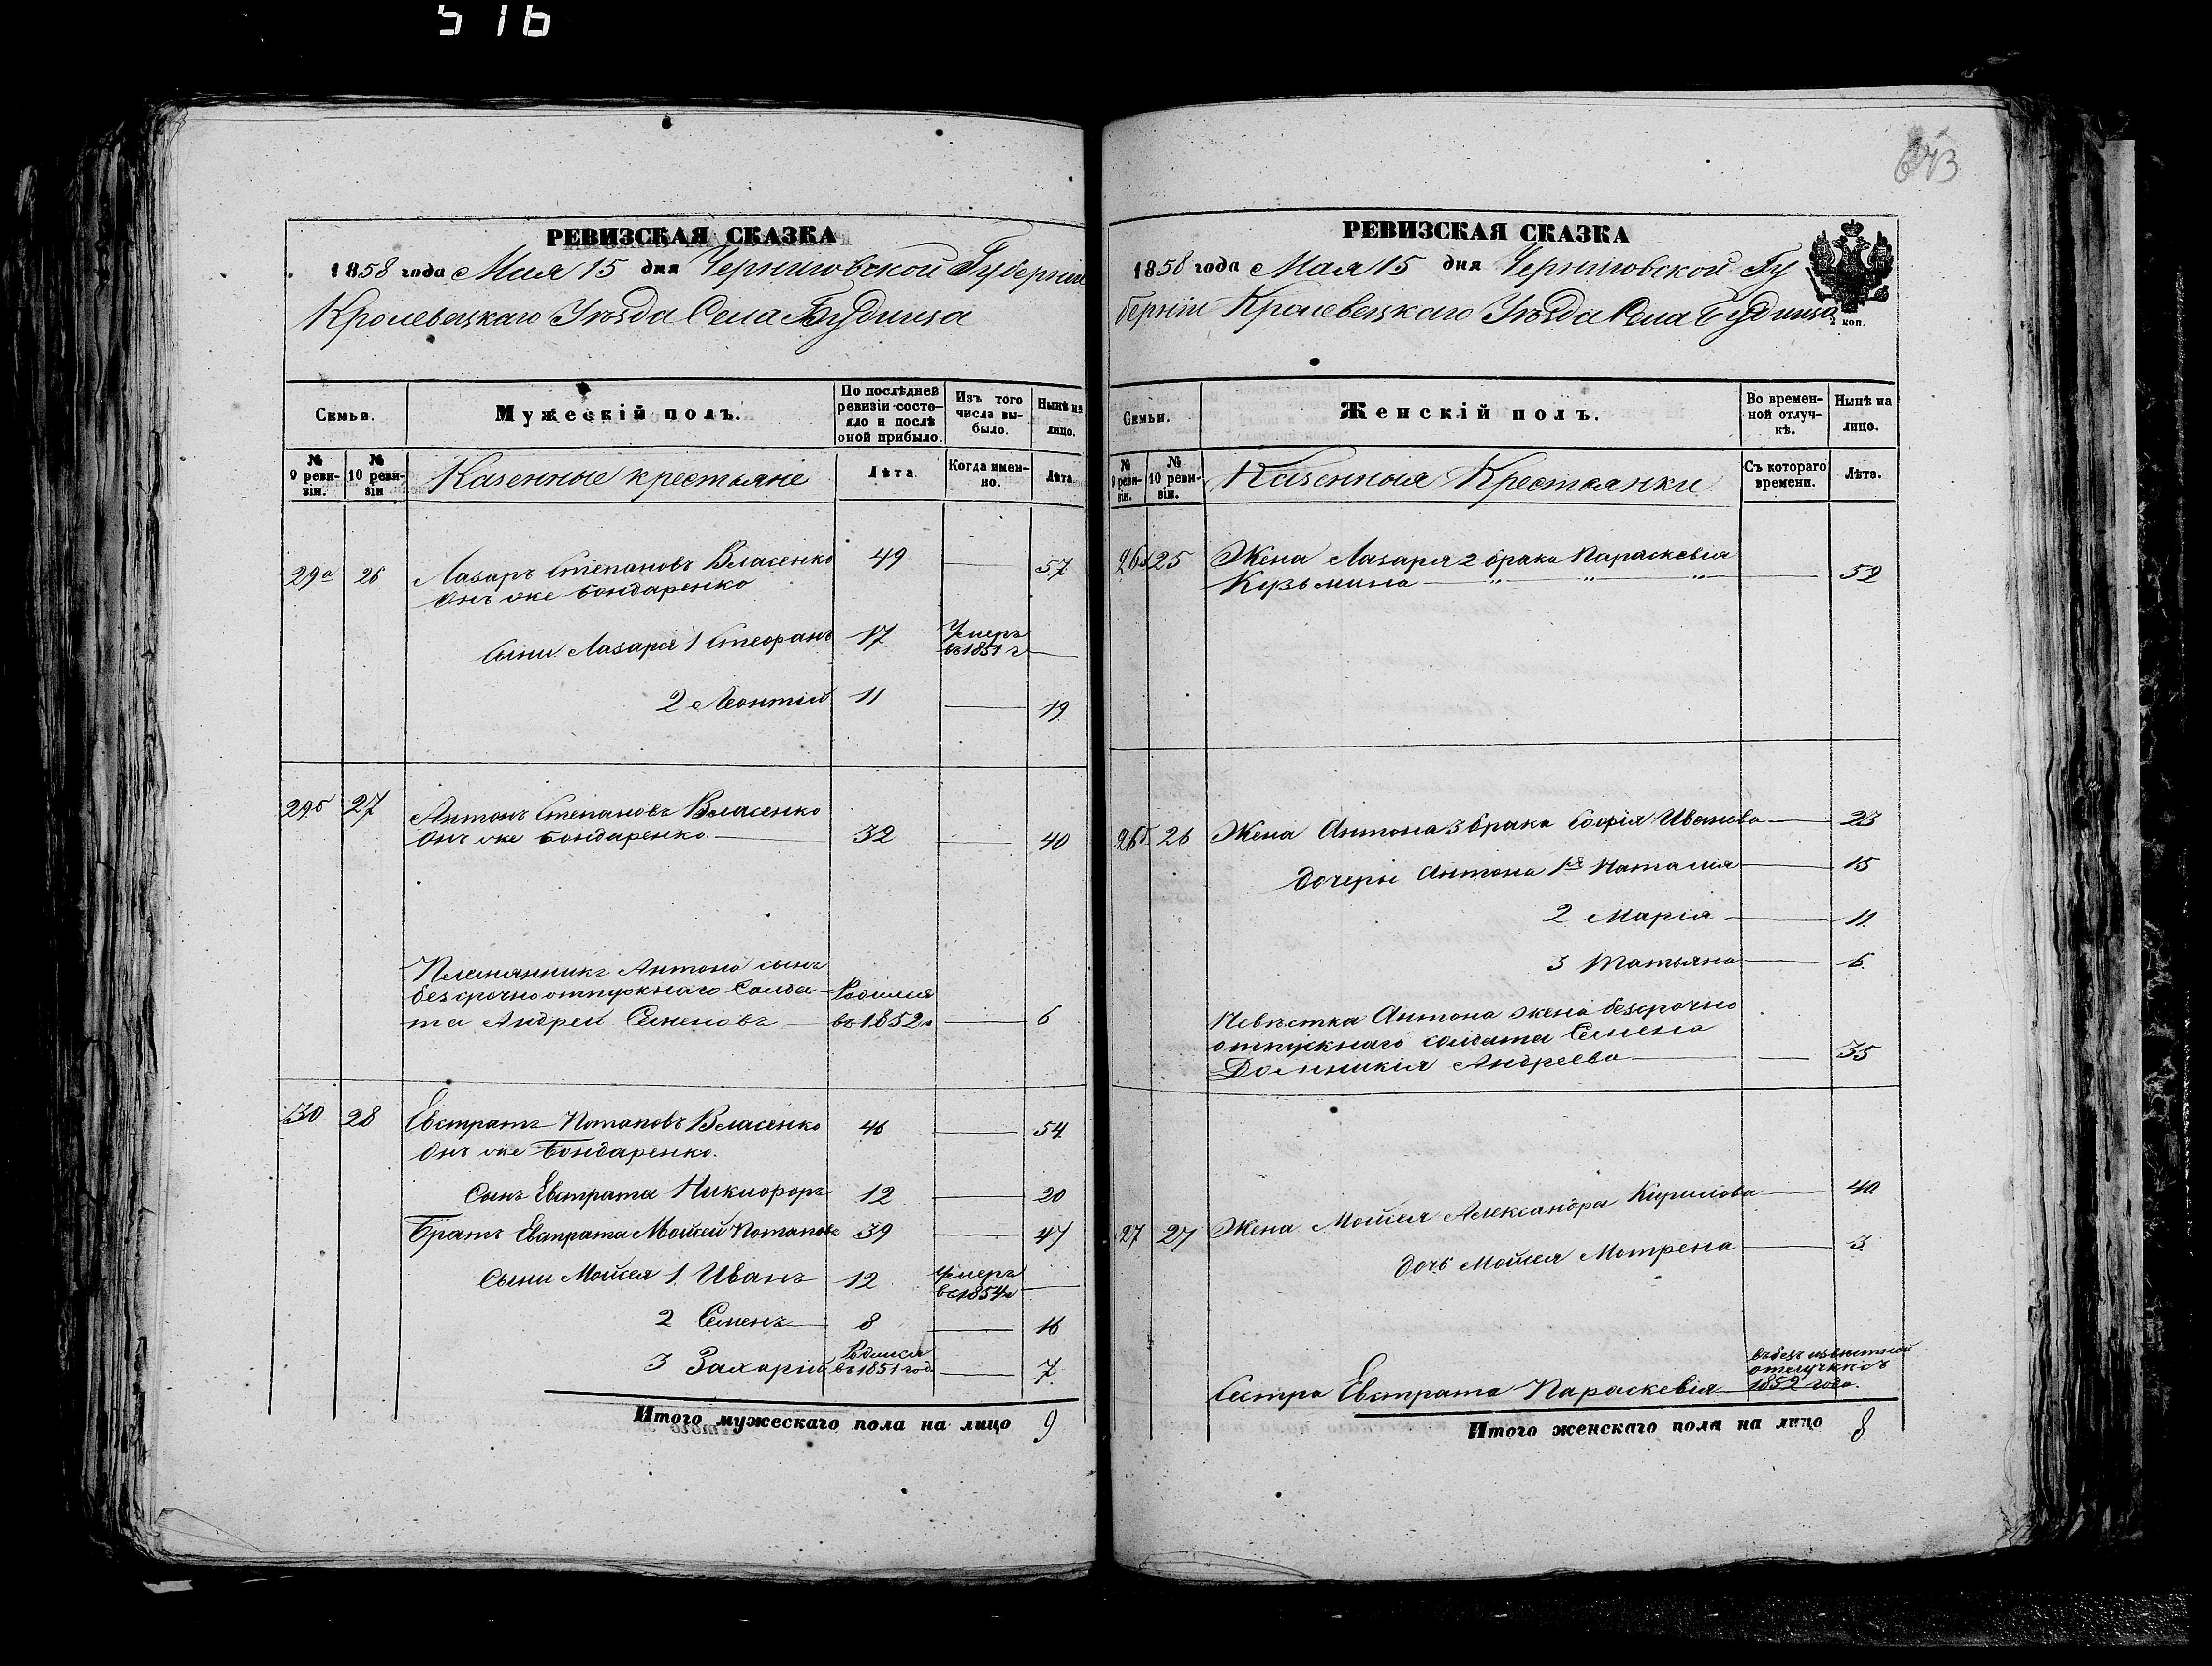 516
РЕВИЗСКАЯ СКАЗКА
1858 года Мая 15 дня Черниговской Губерніи
Кролевецкаго Уѣзда Села Будища
Семьи.
Мужескій полъ.
По послѣдней ревизіи состояло и послѣ оной прибыло.
Изъ того числа выбыло.
Нынѣ на лицо.
№ 9 ревизіи.
№ 10 ревизіи
Казенные крестьяне
Лѣта
Когда именно.
Лѣта
29а 26 Лазаръ Степановъ Власенко 49 — 57
Онъ же Бондаренко
Сыни Лазаря 1 Стефанъ 17 Умеръ въ 1851 г —
2 Леонтій 11 — 19
29б 27 Антонъ Степановъ Власенко
Онъ же Бондаренко — 32 — 40
Племянникъ Антона сынъ
безсрочно отпускнаго Солда- Родился
та Андрей Семеновъ — въ 1852 г — 6
30 28 Евстратъ Потаповъ Власенко 46 — 54
Онъ же Бондаренко.
Сынъ Евстрата Никифоръ 12 — 20
Братъ Евстрата Мойсей Потаповъ 39 — 47
Сыни Мойсея 1 Иванъ 12 Умеръ въ 1854 г —
2 Семенъ — 8 — 16
3 Захарій Родился въ 1851 год — 7
Итого мужескаго пола на лицо 9
РЕВИЗСКАЯ СКАЗКА
1858 года Мая 15 дня Черниговской Гу
берніи Кролевецкаго Уѣзда Села Будища
коп.
Семьи.
Женскій полъ.
Во временной отлучкѣ.
Нынѣ на лицо.
№ 9 ревизіи.
№ 10 ревизіи.
Казенныя Крестьянки
Съ котораго времени.
Лѣта.
25 Жена Лазаря 2 брака Параскевія
Кузьмина — " — " — " — 52
26б 26 Жена Антона 3 брака Софія Иванова — 23
дочери Антона 1я Наталия — 15
2 Марія — 11
3 Татьяна — 6
Невѣстка Антона жена безсрочно
отпускнаго солдата Семена
Домникія Андреева — 35
27 27 Жена Мойсея Александра Кирилова — 40
дочь Мойсея Мотрена — 3
Сестра Евстрата Параскевія — въ безъизвѣстной отлучкѣ съ 1852 года.
Итого женскаго пола на лицо 8